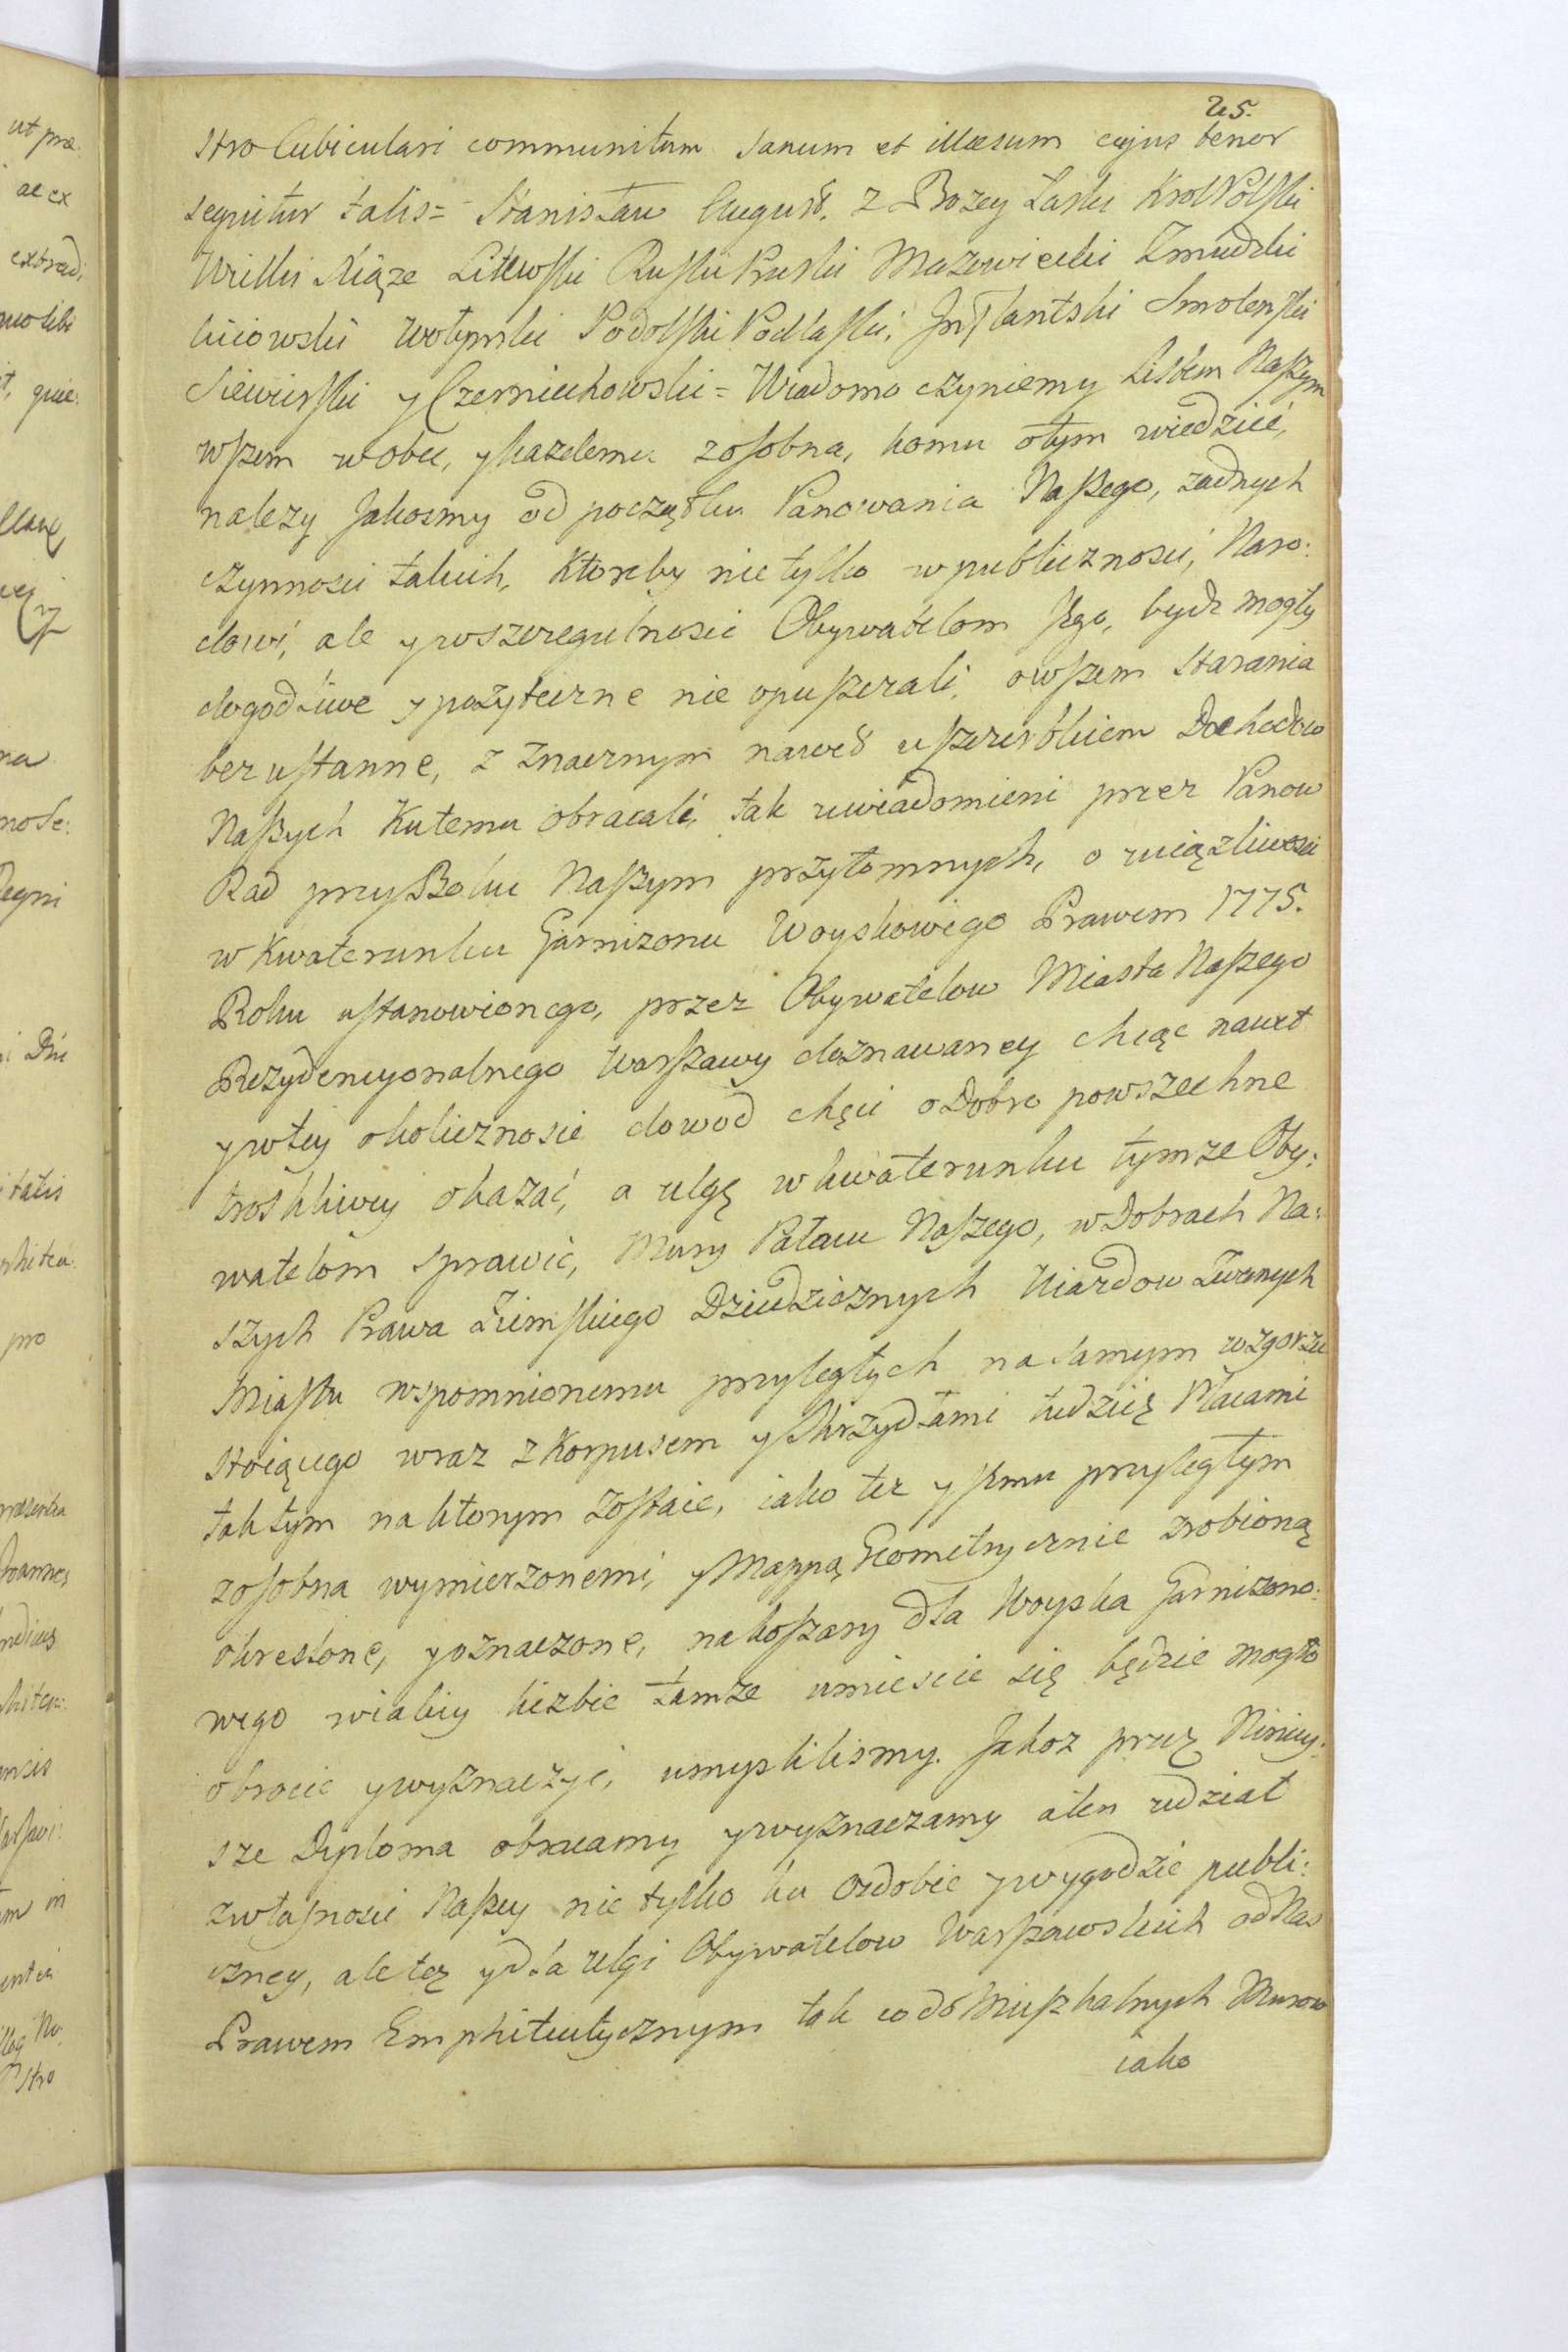 25.
stro Cubiculari communitum sanum et illæsum cujus tenor
sequitur talis = Stanisław August. z Bozey Łaski Krol Polski
Wielki Xiąze Litewski Ruski Pruski Mazowiecki Zmudzki
Kiiowski Wołynski Podolski Podlaski, Inflantski Smolenski
Siewierski y Czerniechowski = Wiadomo czyniemy Listem Naszym
wszem wobec, y kazdemu zosobna, komu otym wiedzieć,
nalezy Jakosmy od początku Panowania Naszego, zadnych
czynnosci takich, ktoreby nie tylko w publicznosci, Naro:
dowi, ale y wszczegulnosci Obywatelom Jego, bydz mogły
dogodźiwe y pozyteczne nie opuszczali, owszem starania
bezustanne, z znacznym nawet uszczerbkiem Dochodow
Naszych Kutemu obracali, tak uwiadomieni przez Panow
Rad przy Boku Naszym przytomnych, o uciązliwosci
w Kwaterunku Garnizonu Woyskowego Prawem 1775.
Roku ustanowionego, przez Obywatelow Miasta Naszego
Rezydencyonalnego Warszawy doznawaney chcąc nawet
y wtey okolicznosci dowod chęci o Dobro powszechne
troskliwey okazać, a ulgę w kwaterunku tymze Oby:
watelom sprawić, Mury Pałacu Naszego, w Dobrach Na:
szych Prawa Ziemskiego Dziedzicznych Uiazdow Zwanych
Miastu wspomnionemu przyległych na samym wzgorzu
stoiącego wraz z Korpusem y Skrzydłami tudzież Placami
tak tym na ktorym zostaie, iako tez y Jemu przyległym
zosobna wymierzonemi, y Mappą Geometrycznie zrobioną
okreslone, y oznaczone, na koszary dla Woyska Garnizono:
wego wiakiey liczbie tamze umiescic się będzie mogło
obrocic y wyznaczyć, umyslilismy. Jakoz przez Niniey:
sze Dyploma obracamy y wyznaczamy aten udział
zwłasnosci Naszey nie tylko ku ozdobie y wygodzie publi:
czney, ale tez y dla ulgi Obywatelow Warszawskich od Nas
Prawem Emphiteutycznym tak co do Mieszkalnych Murow
iako